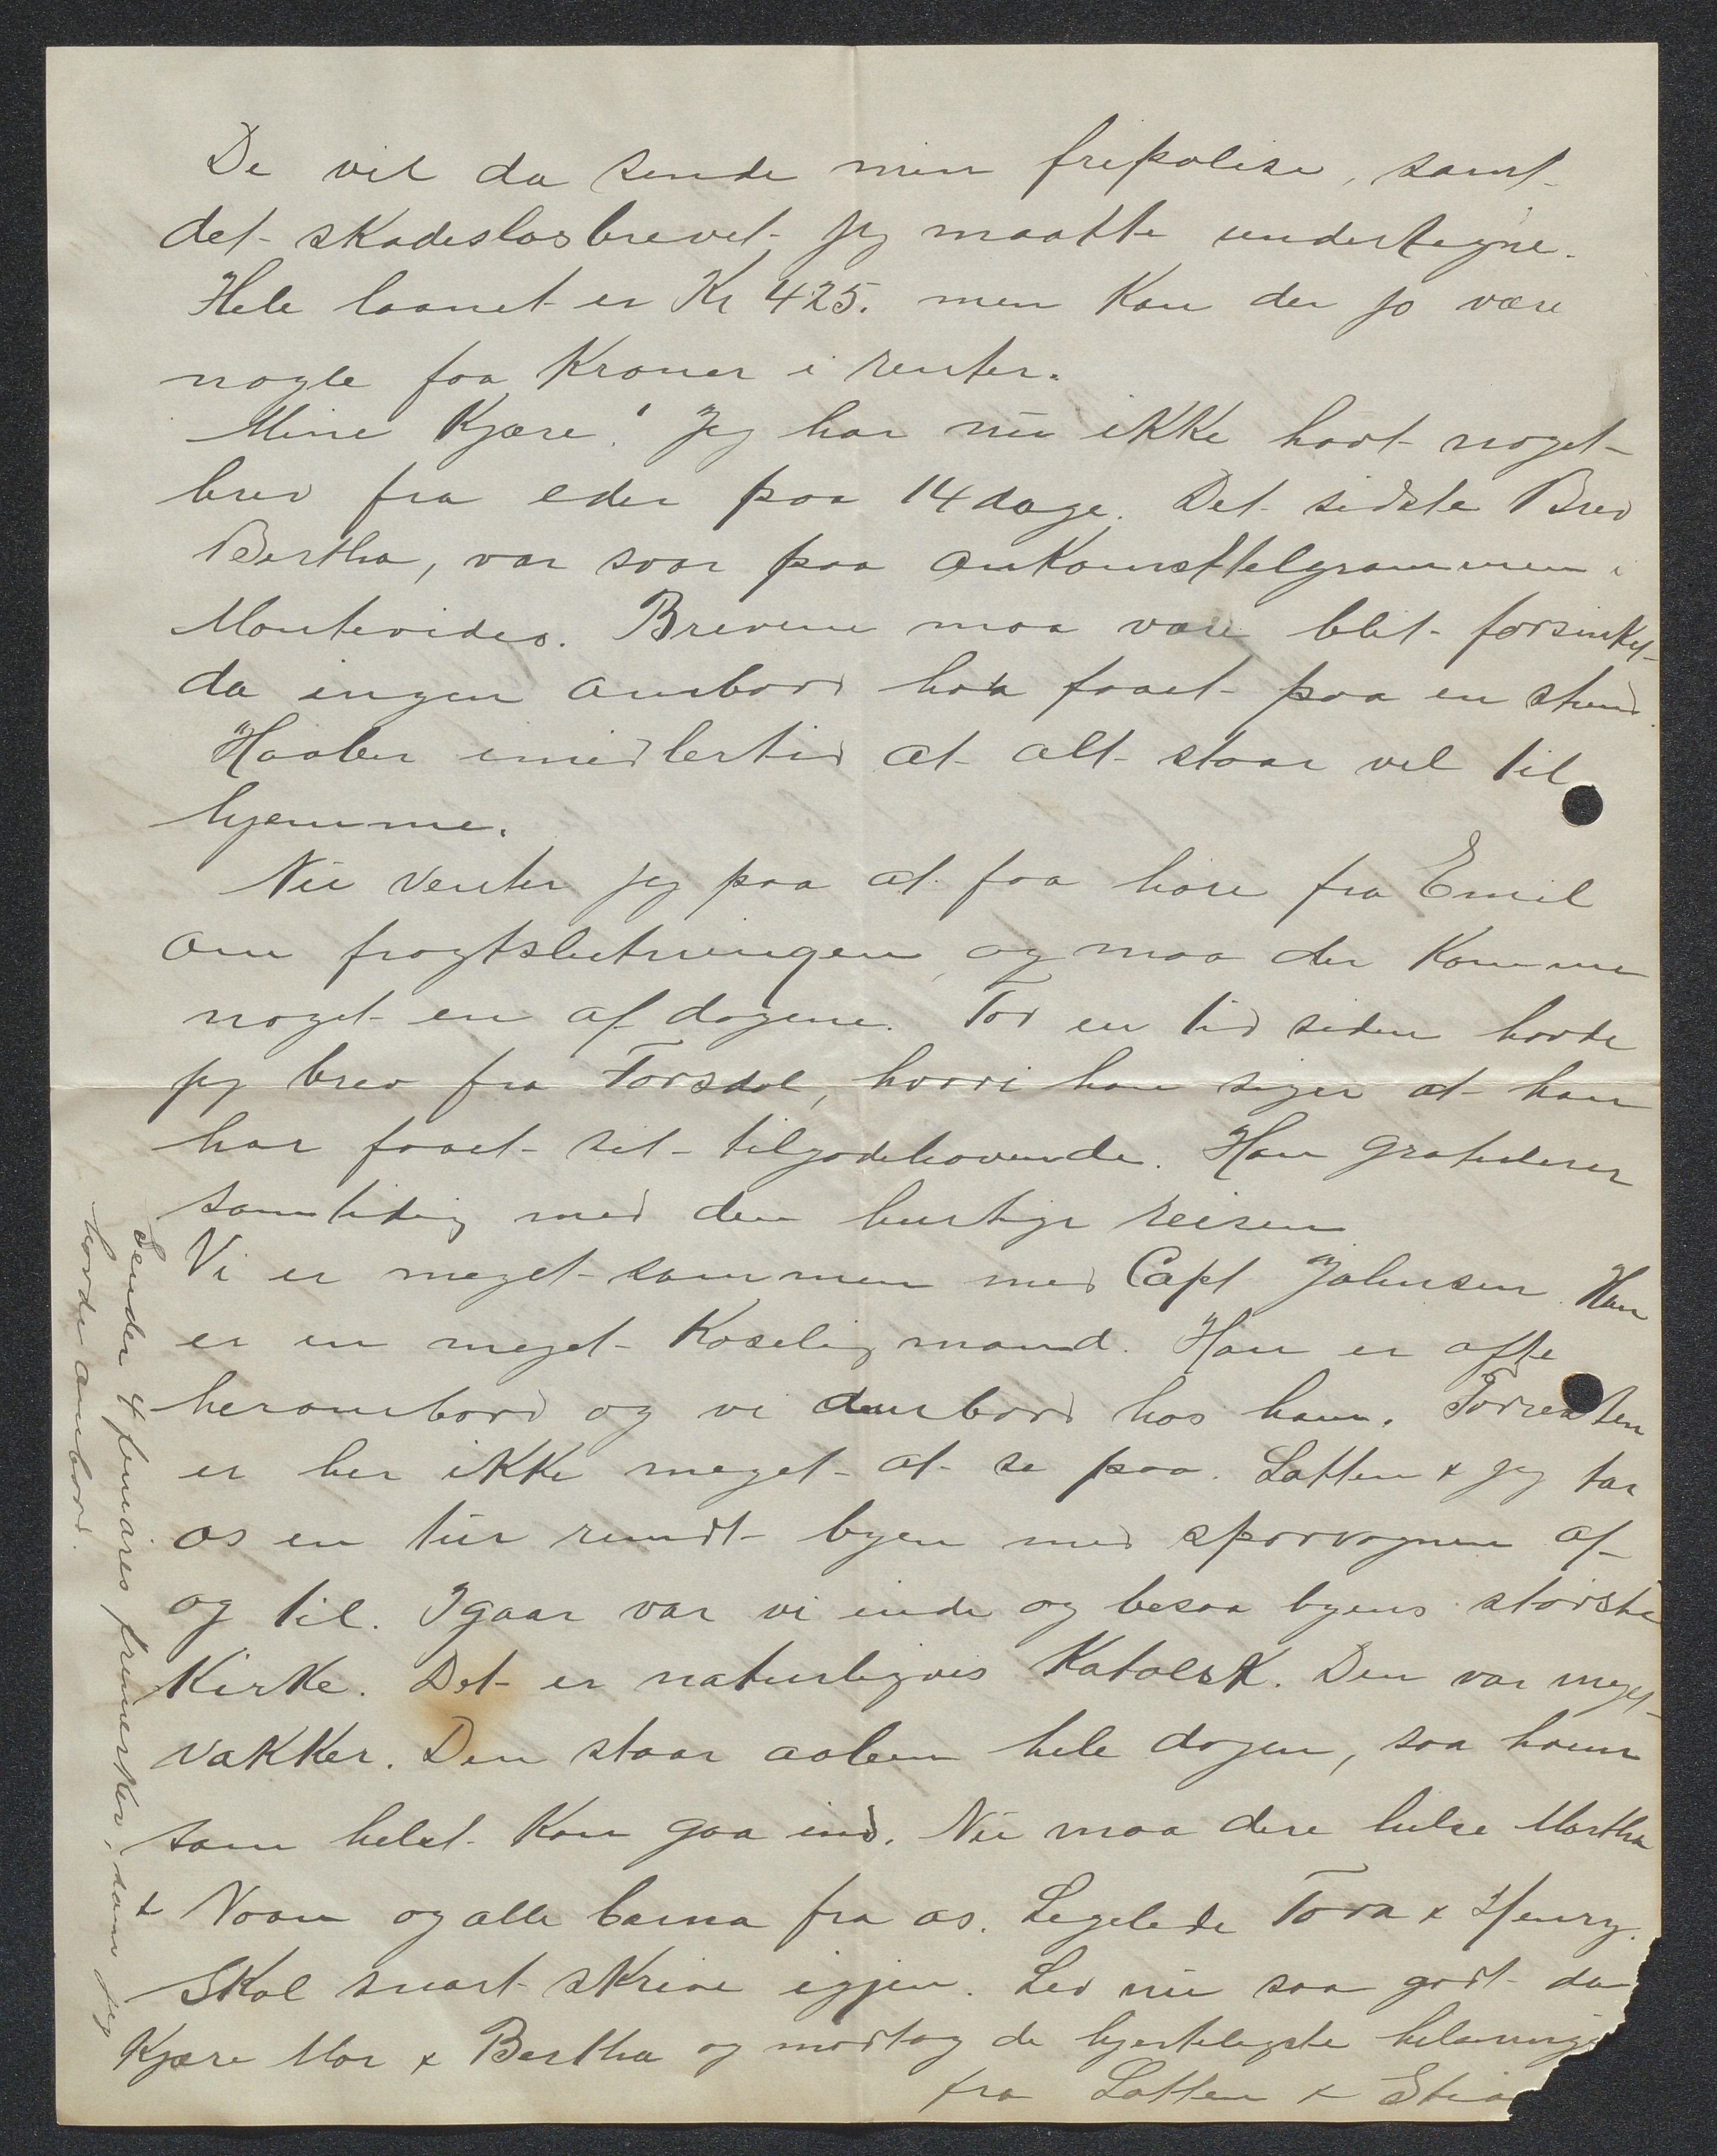 De vil da sende min fripolise, samt
det skadesløsbrevet jeg maatte undertegne.
Hele laanet er Kr 425. men kan der jo være
nogle faa Kroner i renter.
Mine Kjære! Jeg har nu ikke havt noget
brev fra eder paa 14 dage. Det sidste Brev
Bertha, var svar paa ankomsttelgrammen i
Montevideo. Brevene maa være blit forsinket
da ingen ombord har faaet paa en stund.
Haaber imidlertid at alt staar vel til
hjemme.
Nu venter jeg paa at faa høre fra Emil
om fragtslutningen, og maa der komme
noget en af dagene. For en tid siden havde
jeg brev fra Forsdal, hvori han siger at han
har faaet sit tilgodehavende. Han gratulerer
samtidig med den hurtige reisen
Vi er meget sammen med Capt Johnsen. Han
er en meget koselig mand. Han er ofte
herombord og vi ombord hos ham. Forresten
er her ikke meget at se paa. Lotten & jeg tar
os en tur rundt byen med sporvognen af
og til. Igaar var vi inde og besaa byens største
Kirke. Det er naturligvis Katolsk. Den var meget
vakker. Den staar aaben hele dagen, saa hvem
som helst kan gaa ind. Nu maa dere hilse Martha
& Noam og alle barna fra os. Ligelede Tora & Henry.
Skal snart skrive igjen. Lev nu saa godt da
Kjære Mor & Bertha og modtag de hjerteligste hilsninge
fra Lotten & Stia
Sender 4 frimærker, som jeg
havde ombord.